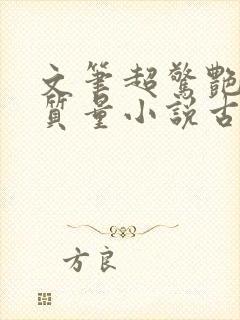 文筆超驚艷
質量小説古
方良